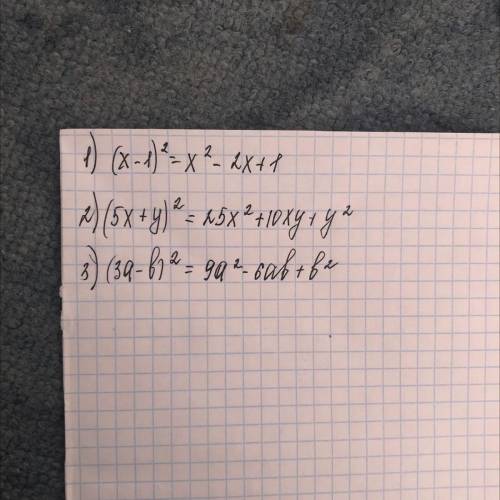 1) (x-1)² = x² - 2x+1
2) (5x+y)² = 25x²+10xy+y²
3) (3a-b)² = 9a²-6ab+b²